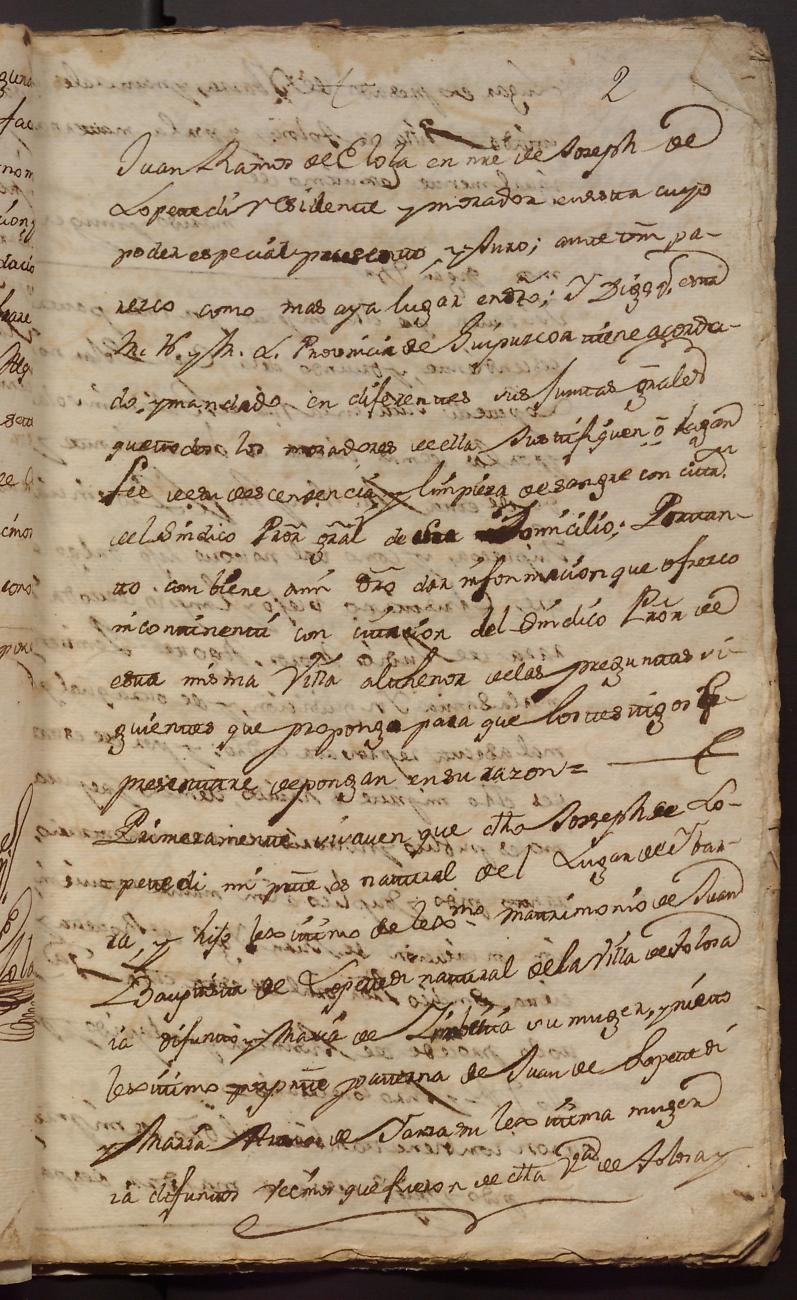 2
Juan Ramos de Elola en nre de Joseph de
Lopetedi residente y morador en esta cuyo
poder especial presento, y Juro; ante Vm pa-
rezco como mas aya lugar en dro; Y Digo q. esta
M. N. y M. L. Provincia de Guipuzcoa tiene acorda-
do, y mandado en diferentes sus Juntas grales
que todos los moradores de ella Justifiquen ō hagan
fee de su descendencia y limpieza de sangre con citan.
del Sindico Pror gral de su Domicilio; Por tan-
to combiene a mi dro dar informacion que ofrezco
incontinenti con citacion del Sindico Pror de
esta misma Villa al thenor de las preguntas si-
guientes que propongo para que los testigos q
presentare depongan en su razon =
Primeramente si saven que dho Joseph de Lo-
petedi mi parte es natural del Lugar de Ybar-
ra, y hijo lexitimo de lexmo matrimonio de Juan
Bauptista de Lopetedi natural de la Villa de Tolosa
ia difunto y Maria de su muger, y nieto
lexitimo por pte paterna de Juan de Lopetedi
y Maria de su lexitima muger
ia difuntos vecinos que fueron de dha Va de Tolosa y